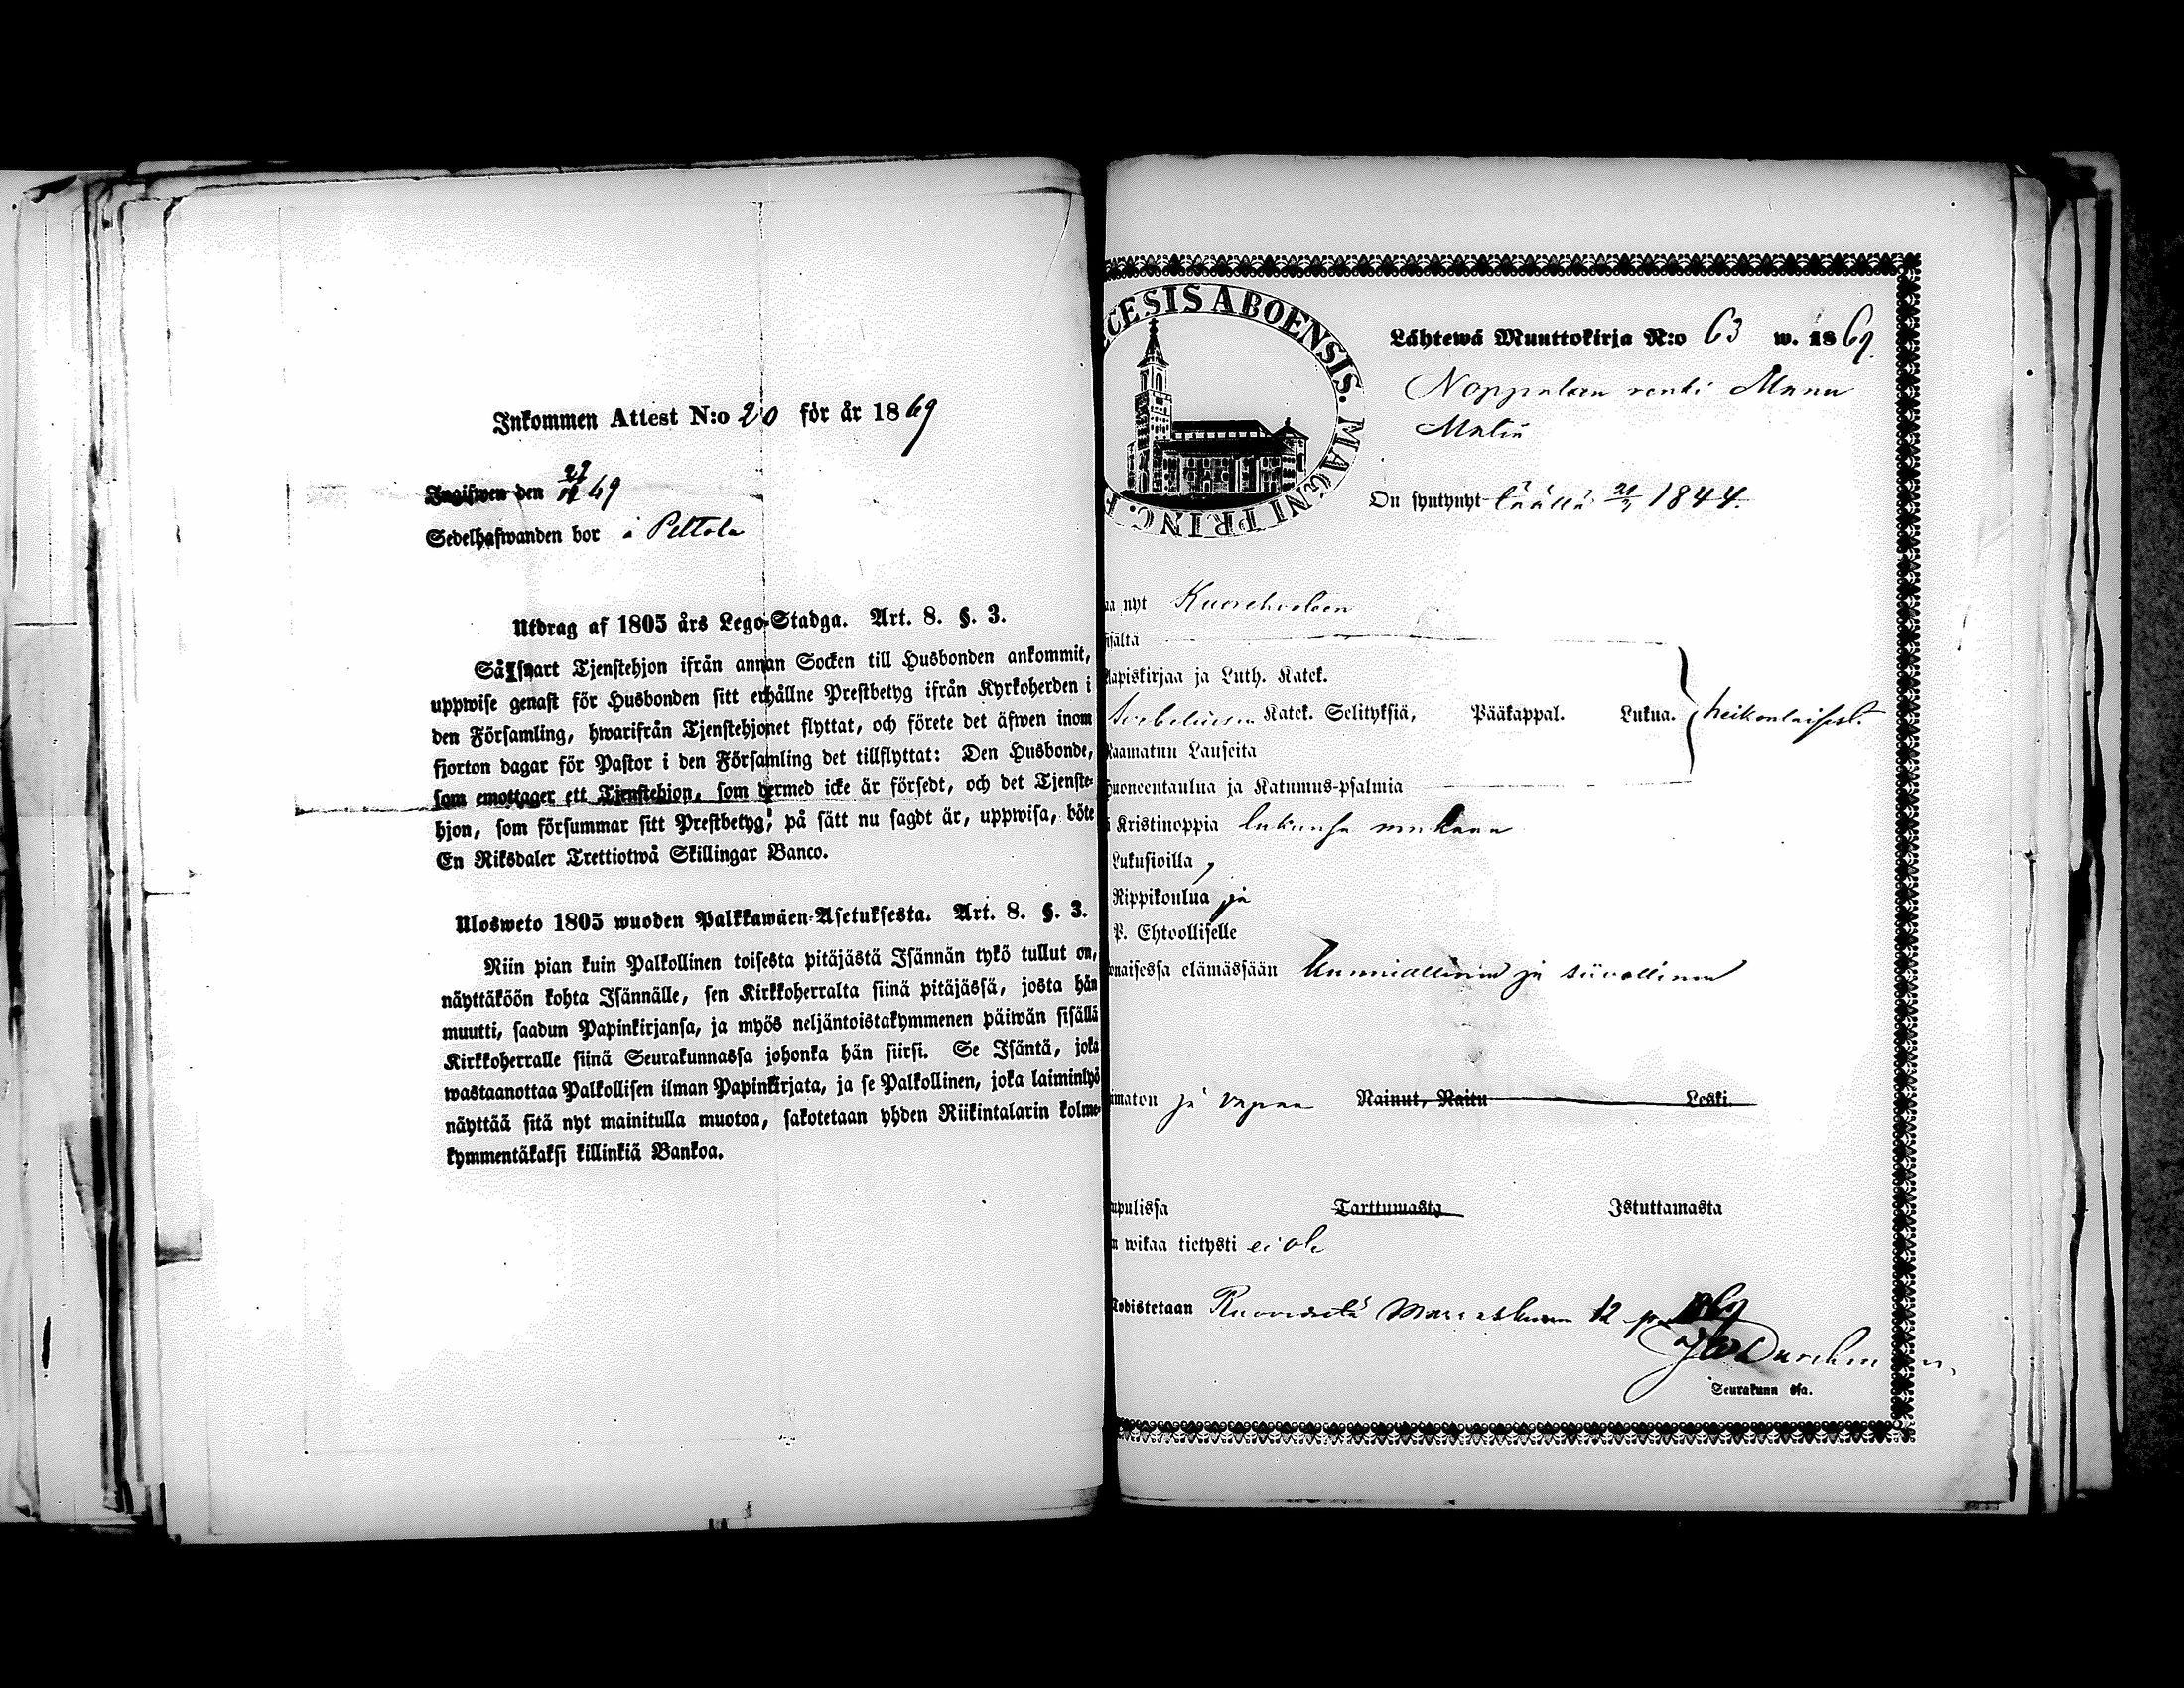 Inkommen Attest N:o 20 för år 1869
Ingifwen den 27/12 69
Sedelhafwanden bor å Peltola
Utdrag af 1805 års Lego-Stadga. Art. 8. §. 3.
Såsnart Tjenstehjon ifrån annan Socken till Husbonden ankommit,
uppwise genast för Husbonden sitt erhållne Prestbetyg ifrån Kyrkoherden i
den Församling, hwarifrån Tjenstehjonet flyttat, och förete det äfwen inom
fjorton dagar för Pastor i den Församling det tillflyttat: Den Husbonde,
som emottager ett Tjenstehjon, som dermed icke är försedt, och det Tjenste-
hjon, som försummar sitt Prestbetyg, på sätt nu sagdt är, uppwisa, böte
En Riksdaler Trettiotwå Skillingar Banco.
Ulosweto 1805 wuoden Palkkawäen-Asetuksesta. Art. 8. §. 3.
Niin pian kuin Palkollinen toisesta pitäjästä Isännän tykö tullut on,
näyttäköön kohta Isännälle, sen Kirkkoherralta siinä pitäjässä, josta hän
muutti, saadun Papinkirjansa, ja myös neljäntoistakymmenen päiwän sisällä
Kirkkoherralle siinä Seurakunnassa johonka hän siirsi. Se Isäntä, joka
wastaanottaa Palkollisen ilman Papinkirjata, ja se Palkollinen, joka laiminlyö
näyttää sitä nyt mainitulla muotoa, sakotetaan yhden Riikintalarin kolme-
kymmentäkaksi killinkiä Bankoa.
CESIS ABOENSIS. MAGNI PRINC. F
Lähtewä Muuttokirja N:o 63 w. 1869.
Noppalan renki Manu
Matin
On syntynyt täällä 21/3 1844.
aa nyt Kuorehveteen
sisältä
Aapiskirjaa ja Luth. Katek.
Katek. Selityksiä, Pääkappal. Lukua.
Raamatun Lauseita
Huoneentaulua ja Katumus-psalmia
ä Kristinoppia lukunsa mukaan
Lukusioilla,
Rippikoulua ja
P. Ehtoolliselle
onaisessa elämässään kunniallinen ja siivollinen
imaton ja vapaa Nainut, Naitu Leski.
upulissa Tarttumasta Istuttamasta
n wikaa tietysti ei ole
Todistetaan Ruovedeltä Marraskuun 12 p. 1869
Durchman
Seurakunn :sa.